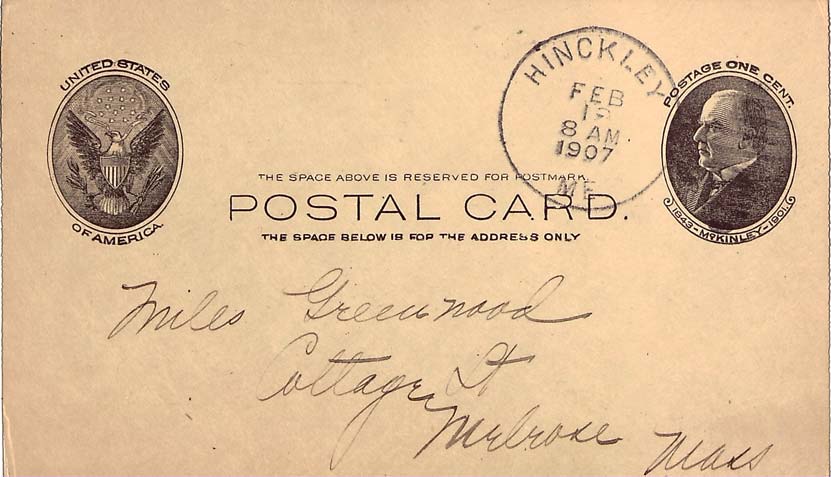 UNITED STATES
OF AMERICA.
HINCKLEY
FEB
8 AM
1907
ME
POSTAGE ONE CENT.
1843-McKINLEY-1901.
THE SPACE ABOVE IS RESERVED FOR POSTMARK.
POSTAL CARD.
THE SPACE BELOW IS FOR THE ADDRESS ONLY
Miles Greenwood
Cottage St
Melrose Mass